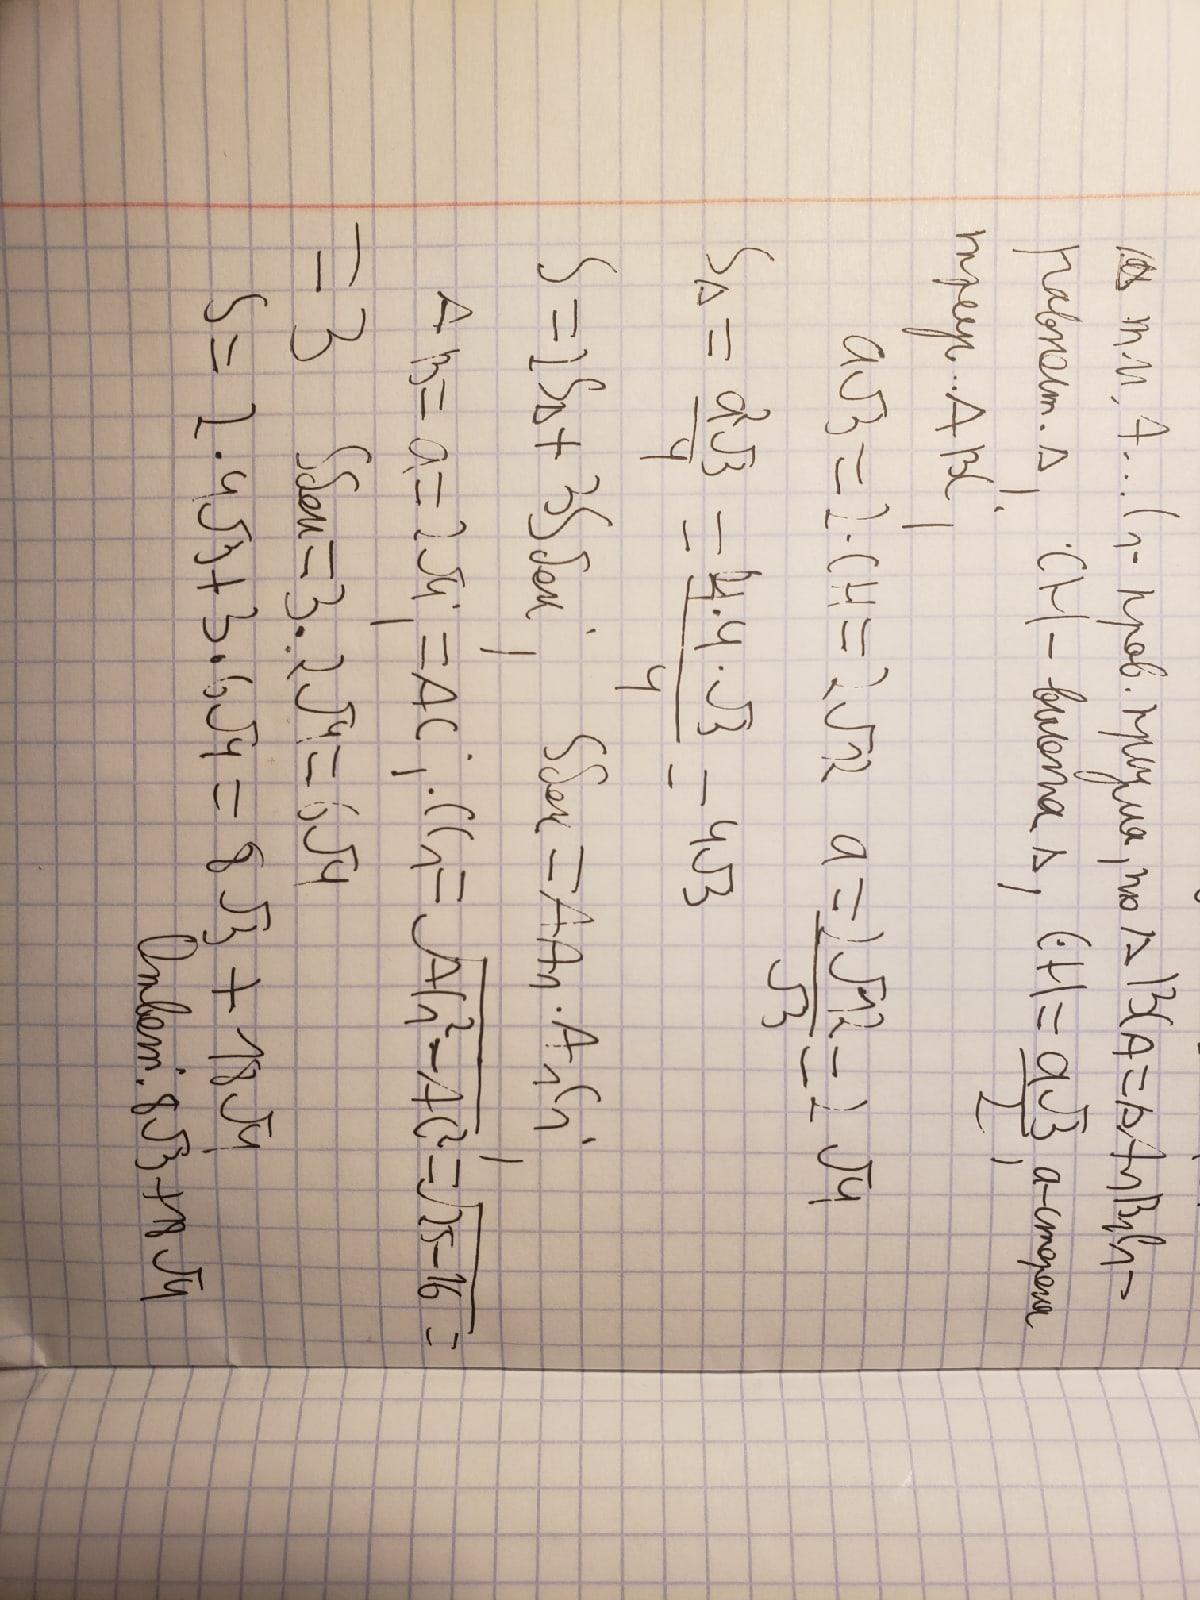 т.к. A...C₁ - прав. призма, то Δ BCA = Δ A₁B₁C₁ -
равност. Δ, CH - высота Δ, CH = a√3/2, a - сторона
треуг. ABC,
a√3 = 2·CH = 2√12 a = 2√12/√3 = 2√4
SΔ = a²√3/4 = 4·4·√3/4 = 4√3
S = 2SΔ + 3Sбок, Sбок = AA₁·A₁C₁,
AB = a = 2√4 = AC, CC₁ = √AC₁² - AC² = √25-16 =
= 3 Sбок = 3·2√4 = 6√4
S = 2·4√3 + 3·6√4 = 8√3 + 18√4
Ответ: 8√3 + 18√4